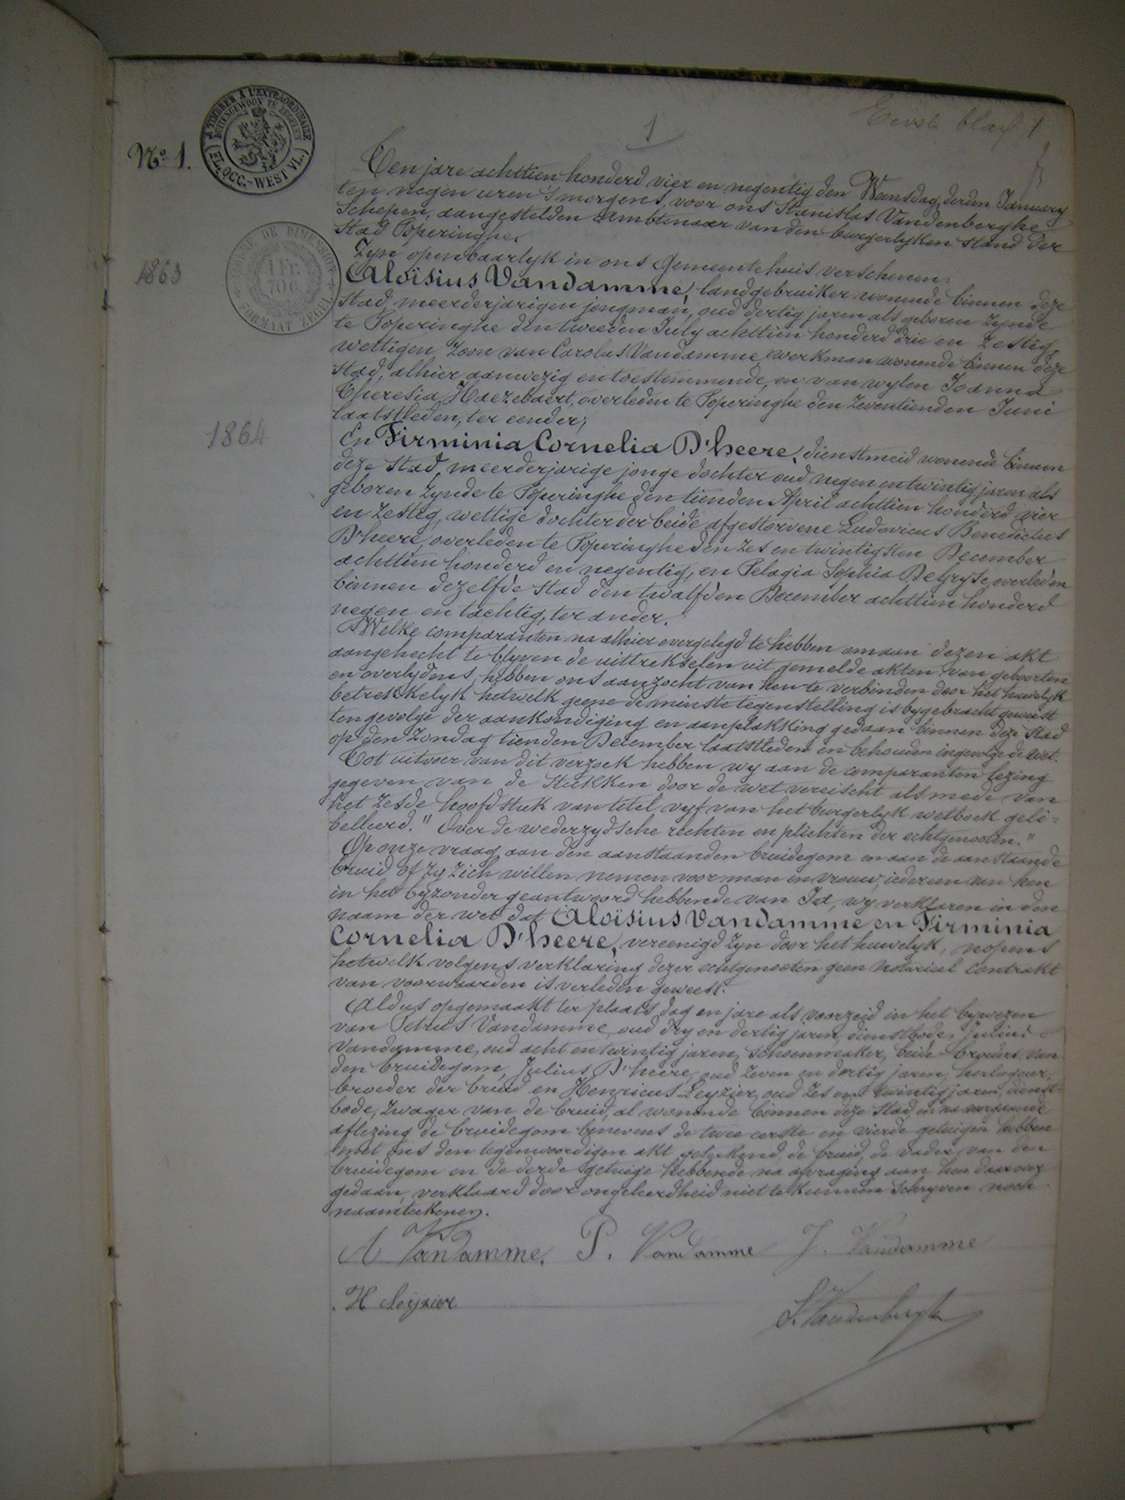 Eerste blad 1
1
A TIMBRER A L'EXTRAORDINAIRE
BUITENGEWOON TE ZEGELEN
FL. OCC.-WEST VL.
N° 1.
Ten jare achttien honderd vier en negentig den Wansdag derden January
ten negen uren 's morgens, voor ons Stanislas Vandenberghe
Schepen, aangestelden ambtenaar van den burgerlyken stand der
stad Poperinghe.
Zyn openbaarlyk in ons gemeentehuis verschenen:
1863
FORMAAT ZEGEL
1 Fr.
Aloïsius Vandamme, landgebruiker wonende binnen deze
stad, meerderjarigen jongman, oud dertig jaren als geboren zynde
te Poperinghe den tweeden July achttien honderd drie en zestig,
wettigen zoon van Carolus Vandamme, werkman wonende binnen deze
stad, alhier aanwezig en toestemmende, en van wylen Joanna
Theresia Haezebaert, overleden te Poperinghe den zeventienden Juni
laatstleden, ter eender;
1864
En Firminia Cornelia D'heere, dienstmeid wonende binnen
deze stad, meerderjarige jonge dochter oud negen en twintig jaren als
geboren zynde te Poperinghe den tienden April achttien honderd vier
en zestig, wettige dochter der beide afgestorvene Ludovicus Benedictus
D'heere, overleden te Poperinghe den zes en twintigsten December
achttien honderd en negentig, en Pelagia Sophia Degryse, overleden
binnen dezelfde stad den twalfden December achttien honderd
negen en tachtig, ter ander.
Welke comparanten na alhier overgelegd te hebben om aan dezen akt
aangehecht te blyven de uittrekselen uit gemelde akten van geboorten
en overlydens, hebben ons aanzocht van hen te verbinden door het huwelyk
betrekkelyk hetwelk geene de minste tegenstelling is bygebracht geweest
ten gevolge der aankondiging en aanplakking gedaan binnen deze stad
op den Zondag tienden December laatstleden en behouden ingevolge de wet.
Tot uitvoer van dit verzoek hebben wy aan de comparanten lezing
gegeven van de stukken door de wet vereischt als mede van
het zesde hoofdstuk van titel vyf van het burgerlyk wetboek geli-
belleerd. "Over de wederzydsche rechten en plichten der echtgenooten."
Op onze vraag aan den aanstaanden bruidegom en aan de aanstaande
bruid of zy zich willen nemen voor man en vrouw, iedereen van hen
in het byzonder geantwoord hebbende van Ja, wy verklaren in den
naam der wet dat Aloïsius Vandamme en Firminia
Cornelia D'heere, vereenigd zyn door het huwelyk, nopens
hetwelk volgens verklaring dezer echtgenooten geen notarieel contrakt
van voorwaarden is verleden geweest.
Aldus opgemaakt ter plaats dag en jare als voorzeid in het bywezen
van Petrus Vandamme, oud dry en dertig jaren, dienstbode, Julius
Vandamme, oud acht en twintig jaren, schoenmaker, beide broeders van
den bruidegom, Julius D'heere, oud zeven en dertig jaren,
broeder der bruid en Henricus Leyzier, oud zes en twintig jaren, dienst-
bode, zwager van de bruid, al wonende binnen deze stad en na
aflezing de bruidegom benevens de twee eerste en vierde getuigen hebben
met ons den tegenwoordigen akt geteekend, de bruid, de vader van den
bruidegom en de derde getuige hebbende na afvraging aan hen daarover
gedaan, verklaard door ongeleerdheid niet te kunnen schryven noch
naamteekenen.
A Vandamme. P. Vandamme J. Vandamme
H Leyzier
S. Vandenberghe